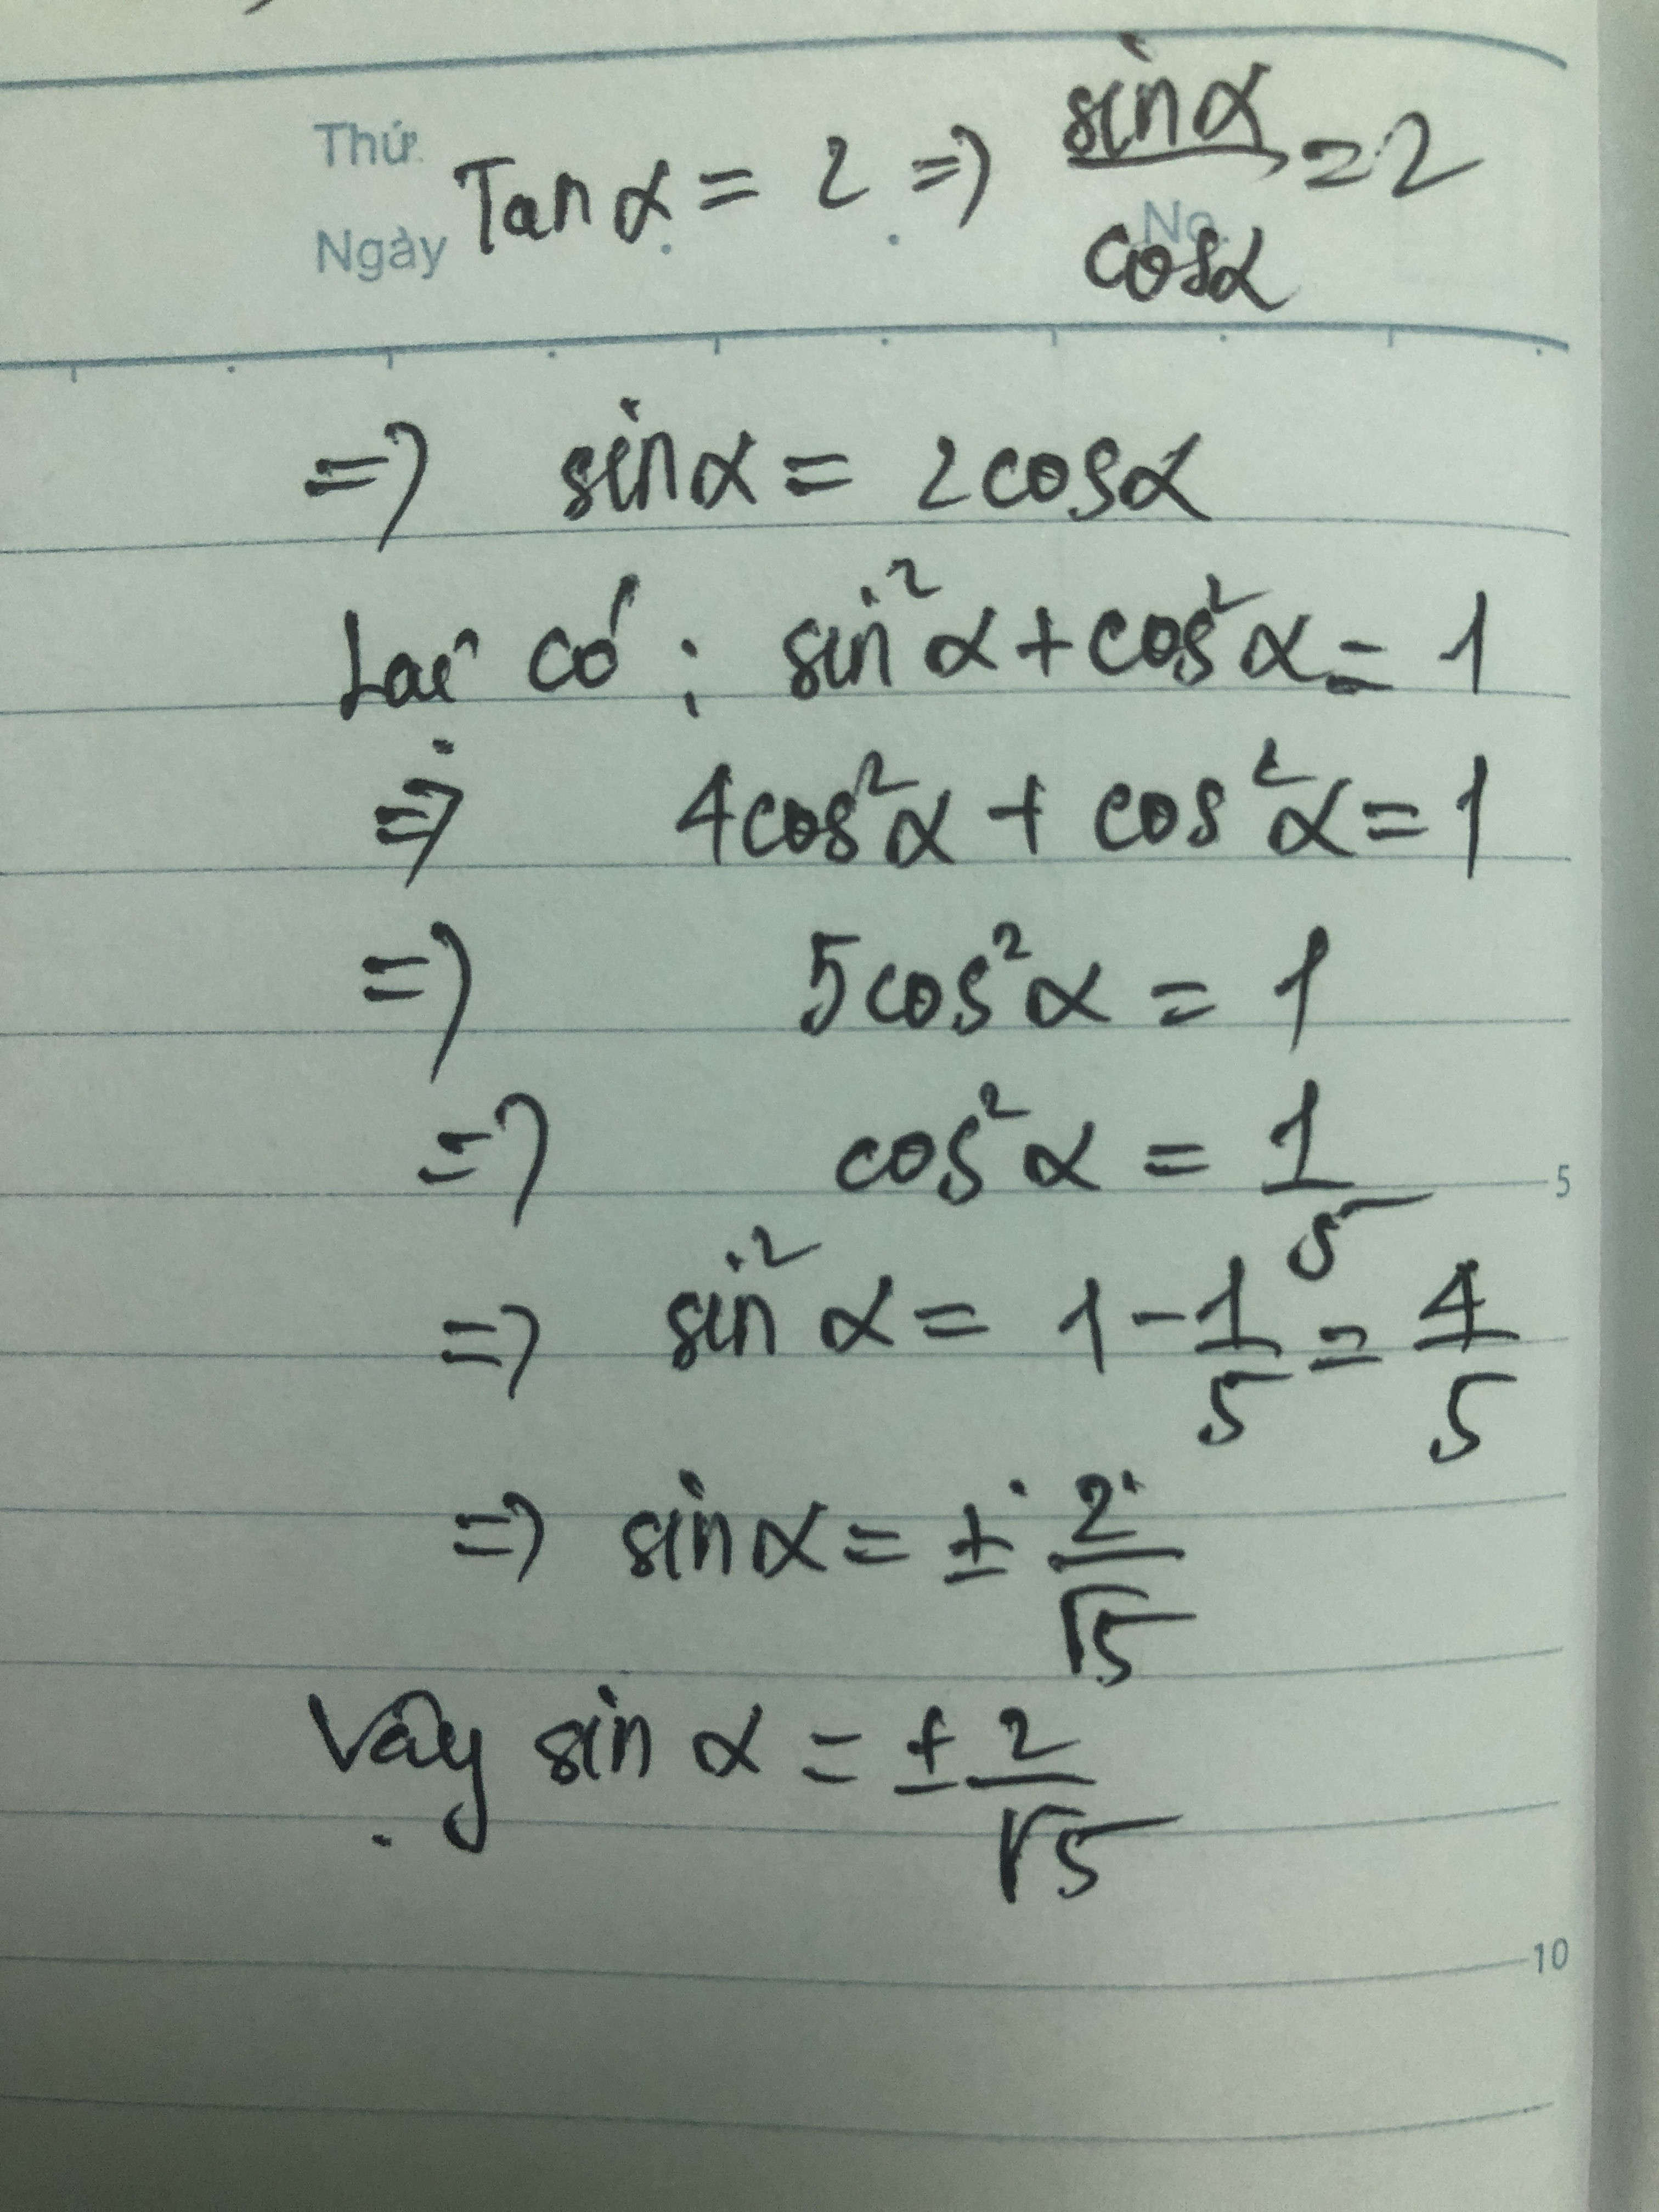 Thứ
Ngày
No.
Tan α = 2 => sinα/cosα = 2
=> sinα = 2cosα
Lại có : sin²α + cos²α = 1
=> 4cos²α + cos²α = 1
=> 5cos²α = 1
=> cos²α = 1/5
5
=> sin²α = 1 - 1/5 = 4/5
=> sinα = ± 2/√5
Vậy sin α = ± 2/√5
10